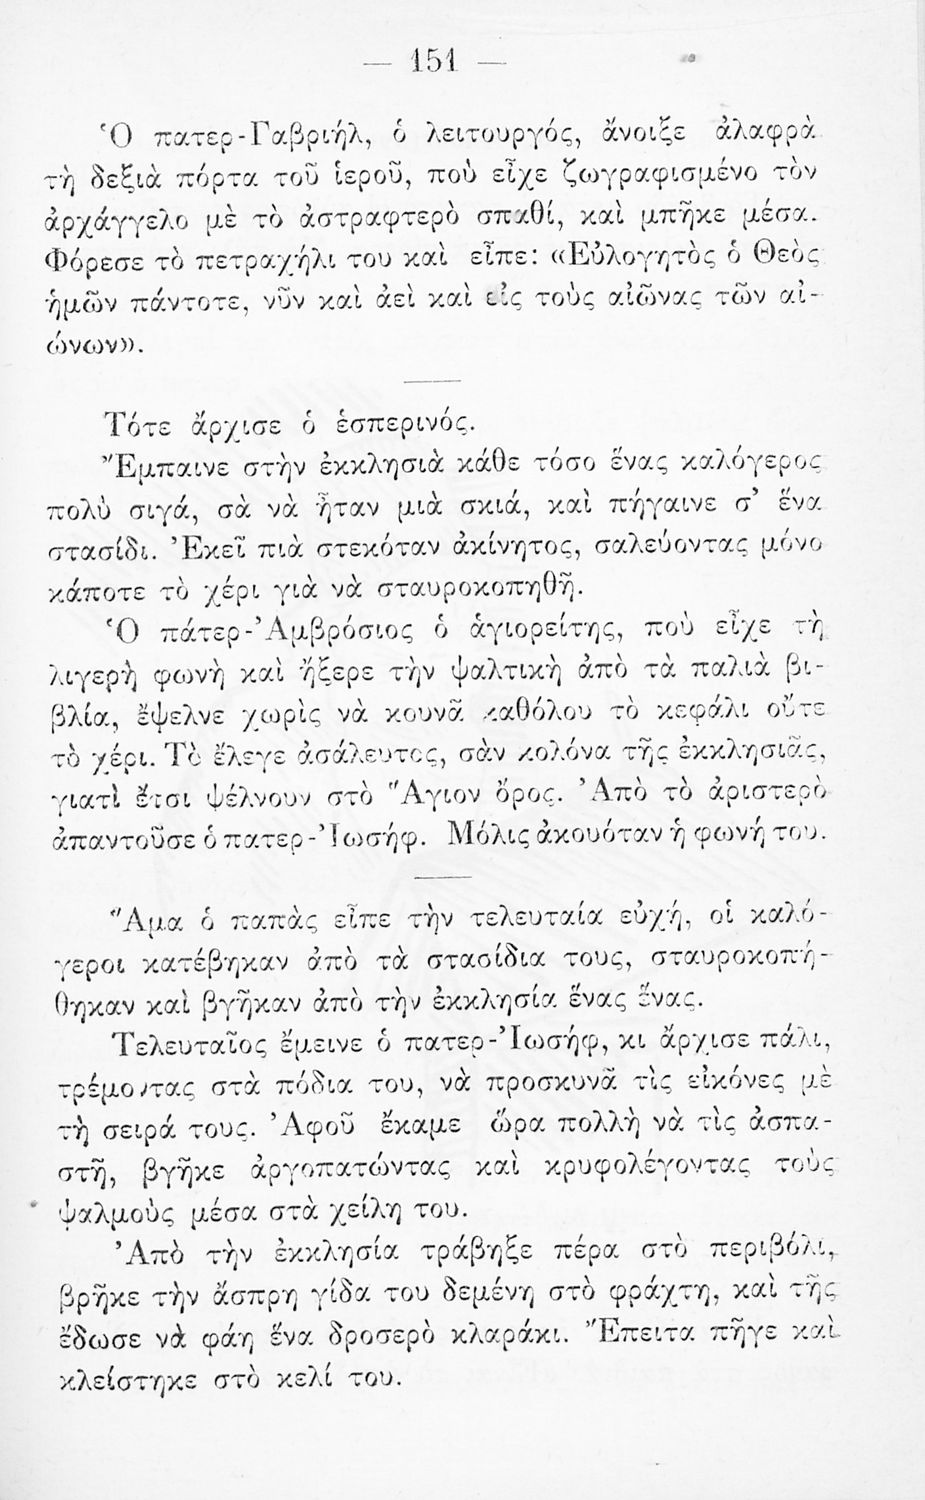 — 151 —
Ὁ πατερ-Γαβριήλ, ὁ λειτουργός, ἄνοιξε ἀλαφρὰ
τὴ δεξιὰ πόρτα τοῦ ἱεροῦ, ποὺ εἶχε ζωγραφισμένο τὸν
ἀρχάγγελο μὲ τὸ ἀστραφτερὸ σπαθί, καὶ μπῆκε μέσα.
Φόρεσε τὸ πετραχήλι του καὶ εἶπε: «Εὐλογητὸς ὁ Θεὸς
ἡμῶν πάντοτε, νῦν καὶ ἀεὶ καὶ εἰς τοὺς αἰῶνας τῶν αἰ-
ώνων».
Τότε ἄρχισε ὁ ἑσπερινός.
Ἔμπαινε στὴν ἐκκλησιὰ κάθε τόσο ἕνας καλόγερος
πολὺ σιγά, σὰ νὰ ἦταν μιὰ σκιά, καὶ πήγαινε σ’ ἕνα
στασίδι. Ἐκεῖ πιὰ στεκόταν ἀκίνητος, σαλεύοντας μόνο
κάποτε τὸ χέρι γιὰ νὰ σταυροκοπηθῆ.
Ὁ πάτερ-Ἀμβρόσιος ὁ ἁγιορείτης, ποὺ εἶχε τὴ
λιγερὴ φωνὴ καὶ ἤξερε τὴν ψαλτικὴ ἀπὸ τὰ παλιὰ βι-
βλία, ἔψελνε χωρὶς νὰ κουνᾶ καθόλου τὸ κεφάλι οὔτε
τὸ χέρι. Τὸ ἔλεγε ἀσάλευτος, σὰν κολόνα τῆς ἐκκλησιᾶς,
γιατὶ ἔτσι ψέλνουν στὸ Ἅγιον ὄρος. Ἀπὸ τὸ ἀριστερὸ
ἀπαντοῦσε ὁ πατερ-Ἰωσήφ. Μόλις ἀκουόταν ἡ φωνή του.
Ἅμα ὁ παπὰς εἶπε τὴν τελευταία εὐχή, οἱ καλό-
γεροι κατέβηκαν ἀπὸ τὰ στασίδια τους, σταυροκοπή-
θηκαν καὶ βγῆκαν ἀπὸ τὴν ἐκκλησία ἕνας ἕνας.
Τελευταῖος ἔμεινε ὁ πατερ-Ἰωσήφ, κι ἄρχισε πάλι,
τρέμοντας στὰ πόδια του, νὰ προσκυνᾶ τὶς εἰκόνες μὲ
τὴ σειρά τους. Ἀφοῦ ἔκαμε ὥρα πολλὴ νὰ τὶς ἀσπα-
στῆ, βγῆκε ἀργοπατώντας καὶ κρυφολέγοντας τοὺς
ψαλμοὺς μέσα στὰ χείλη του.
Ἀπὸ τὴν ἐκκλησία τράβηξε πέρα στὸ περιβόλι,
βρῆκε τὴν ἄσπρη γίδα του δεμένη στὸ φράχτη, καὶ τῆς
ἔδωσε νὰ φάη ἕνα δροσερὸ κλαράκι. Ἔπειτα πῆγε καὶ
κλείστηκε στὸ κελί του.